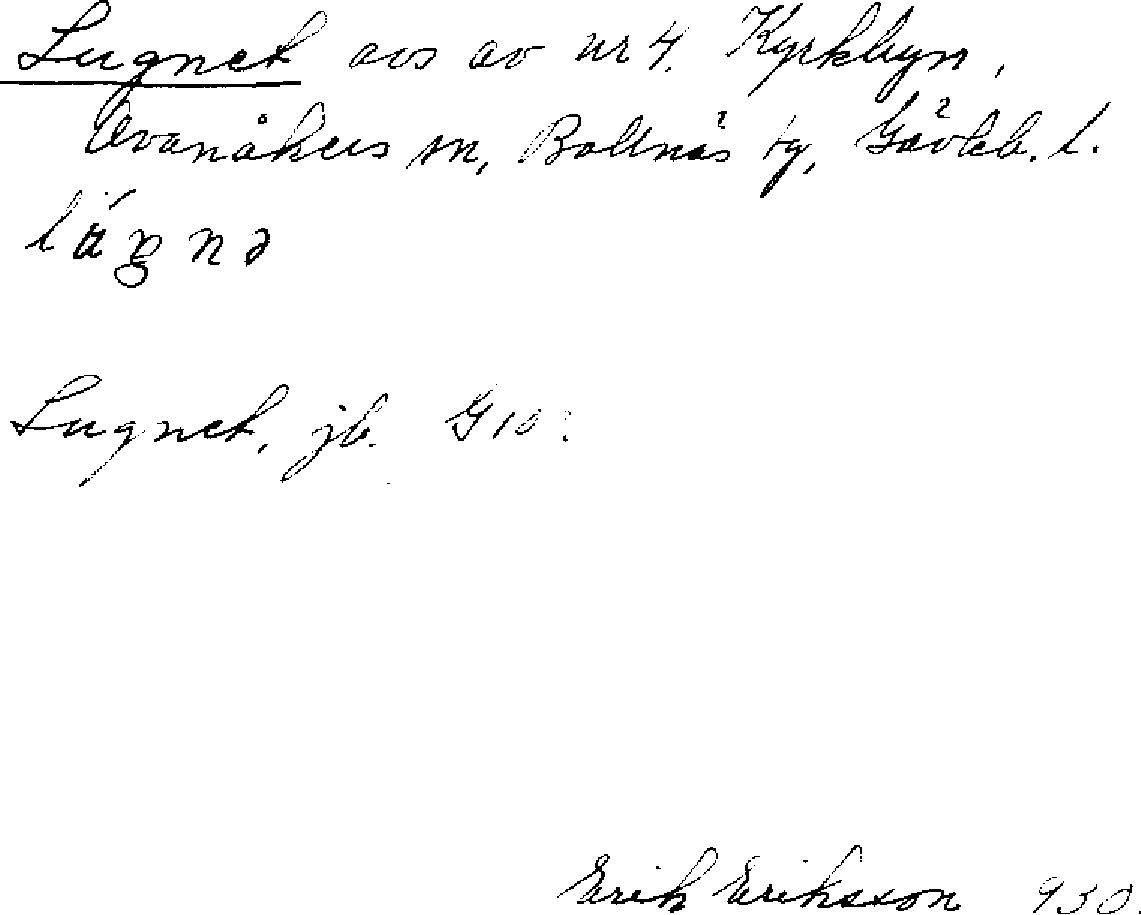 Lugnet avs av nr 4. Kyrkbyn,
Ovanåkers sn, Bollnäs tg, Gävleb. l.
Lugnet, jb. G 10:
Erik Eriksson 930.